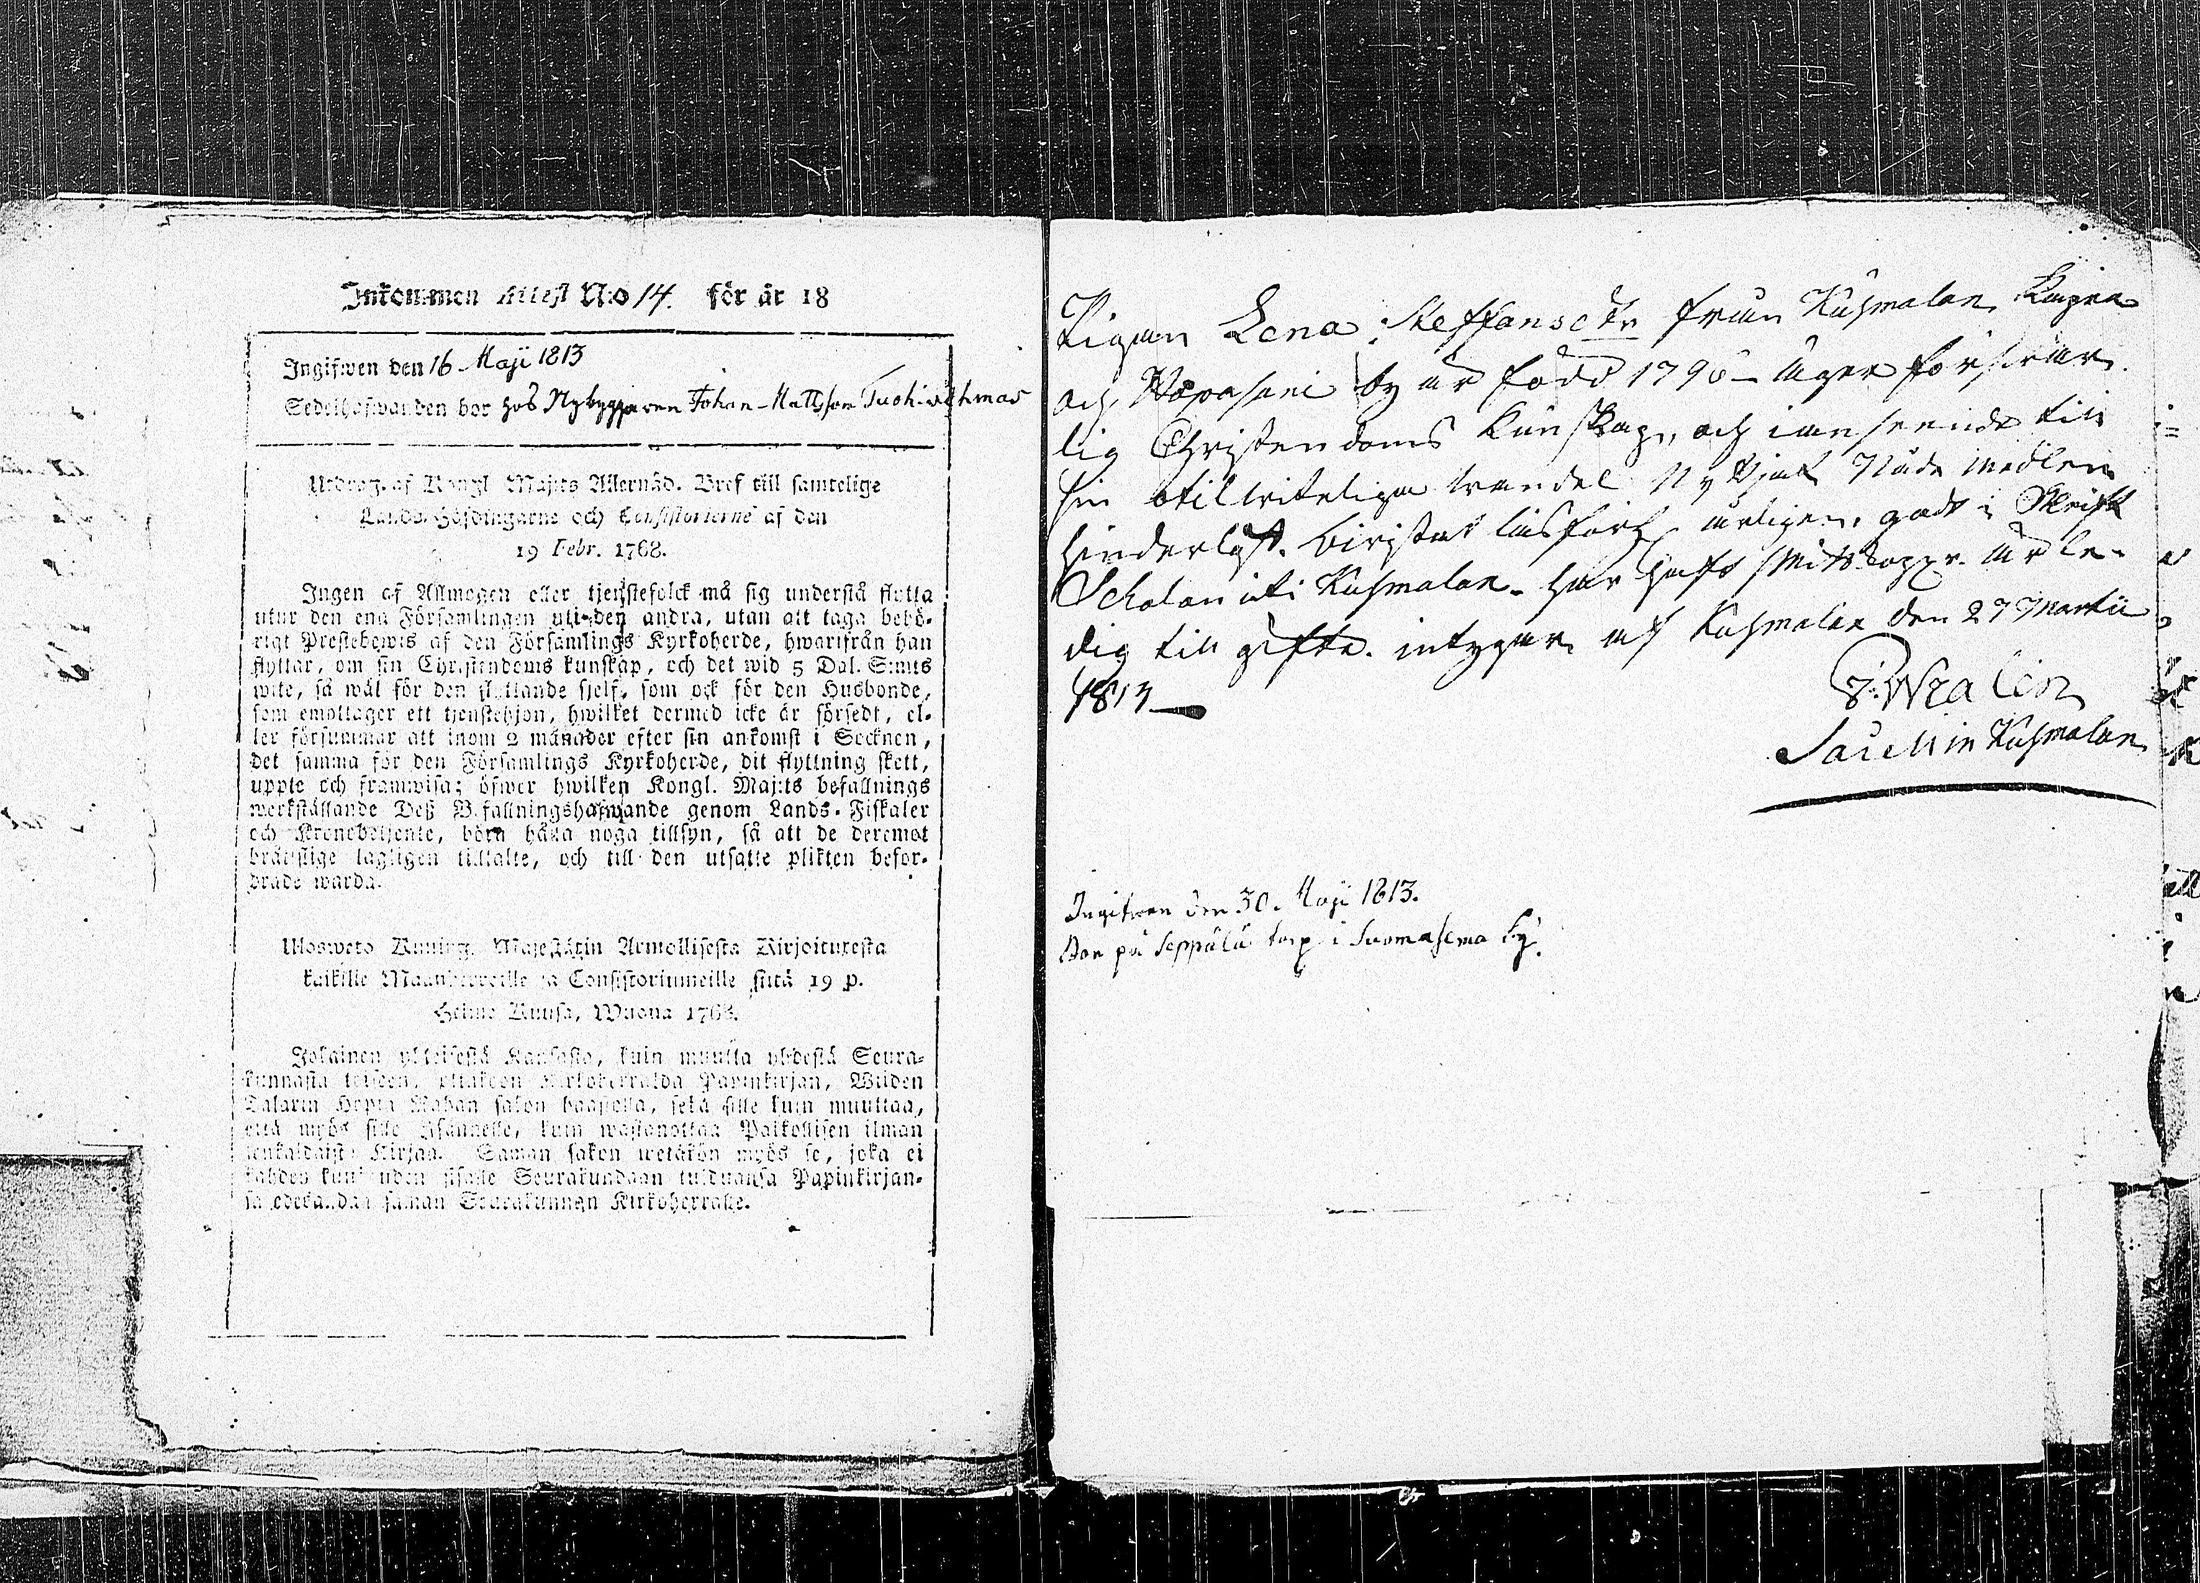 Inkommen Attest N:o 14. för år 18
Ingifwen den 16 Maji 1813
Sedelhafwanden bor hos Nybyggaren Johan Mattsson
Utdrag af Kongl Maj:ts Allernåd. Bref till samtelige
Lands-Höfdingarne och Consistorierne af den
19 Febr. 1768.
Ingen af Allmogen eller tjenstefolck må sig understå flytta
utur den ena Församlingen uti den andra, utan att taga behö-
rigt Prestebewis af den Församlings Kyrkoherde, hwarifrån han
flyttar, om sin Christendoms kunskap, och det wid 5 Dal. S:mts
wite, så wäl för den flyttande sjelf, som ock för den Husbonde,
som emottager ett tjenstehjon, hwilket dermed icke är försedt, el-
ler försummar att inom 2 månader efter sin ankomst i Socknen,
det samma för den Församlings Kyrkoherde, dit flyttning skett,
uppte och framwisa; öfwer hwilken Kongl. Maj:ts befallnings
werkställande Deß Befallningshafwande genom Lands-Fiskaler
och Kronobetjente, böra hålla noga tillsyn, så att de deremot
brottslige lagligen tilltalte, och till den utsatte plikten befor-
drade warda.
Ulosweto Kuning. Majestätin Armollisesta Kirjoituxesta
kaikille Maanherroille ja Consistoriumeille siitä 19 p.
Helmi Kuusa, Wuona 1768.
Jokainen yhteisestä Kansasta, kuin muutta yhdestä Seura-
kunnasta toiseen, Kirkoherralda Papinkirjan, Wiiden
Dalarin Hopia Rahan sakon haastolla, sekä sille kuin muuttaa,
että myös sille Isännelle, kuin wastanottaa Palkollisen ilman
Kirjaa. Saman sakon wetäkön myös se, joka ei
kahden kuukauden sisälle Seurakundaan tulduansa Papinkirjan-
sa saman Seurakunnan Kirkoherralle.
Pigan Lena Steffansdtr från Kuhmalax
och by är född 1796 äger förswar-
lig Christendoms Kunskap, och i anseende till
sin otilwiteliga wandel Nyttjat Nåde medlen
hinderlöst. bewistat läsförhören årligen, gådt i Skrift
Scholan uti Kuhmalax. har haft Mittkoppr. är le-
dig till gifte. intygar af Kuhmalax den 27 Martii
1813
Wealin
Sacell in Kuhmalax
Ingifwen den 30. Maji 1813.
Bor på Seppälä torp i Suomasema by.